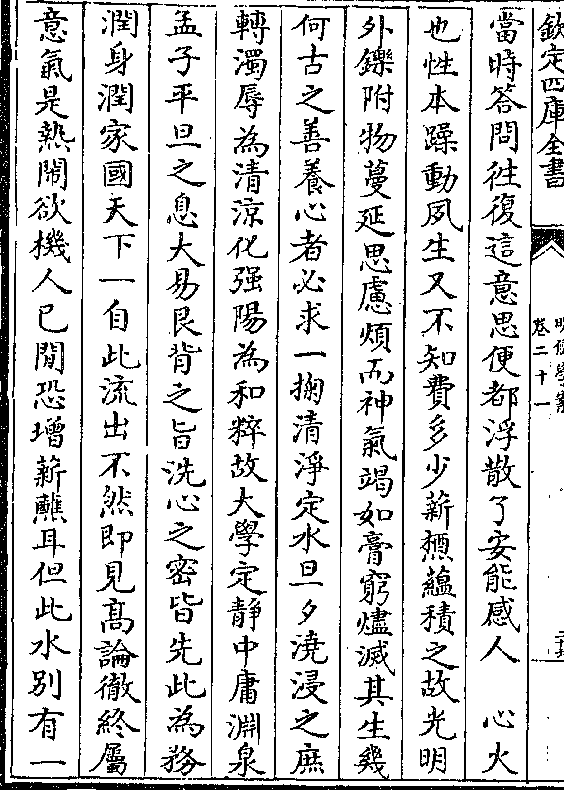 欽定四庫全書
明儒學案
卷二十一
當時答問徃復這意思便都浮散了安能感人　心火
也性本躁動夙生又不知費多少薪櫝蘊積之故光明
外鑠附物蔓延思慮煩而神氣竭如膏窮燼滅其生幾
何古之善養心者必求一掬清淨定水旦夕澆浸之庶
轉濁辱為清涼化强陽為和粹故大學定靜中庸淵泉
孟子平旦之息大易艮背之旨洗心之密皆先此為務
潤身潤家國天下一自此流出不然即見髙論徹終屬
意氣是熱鬧欲機人已閒恐增薪蘸耳但此水別有一